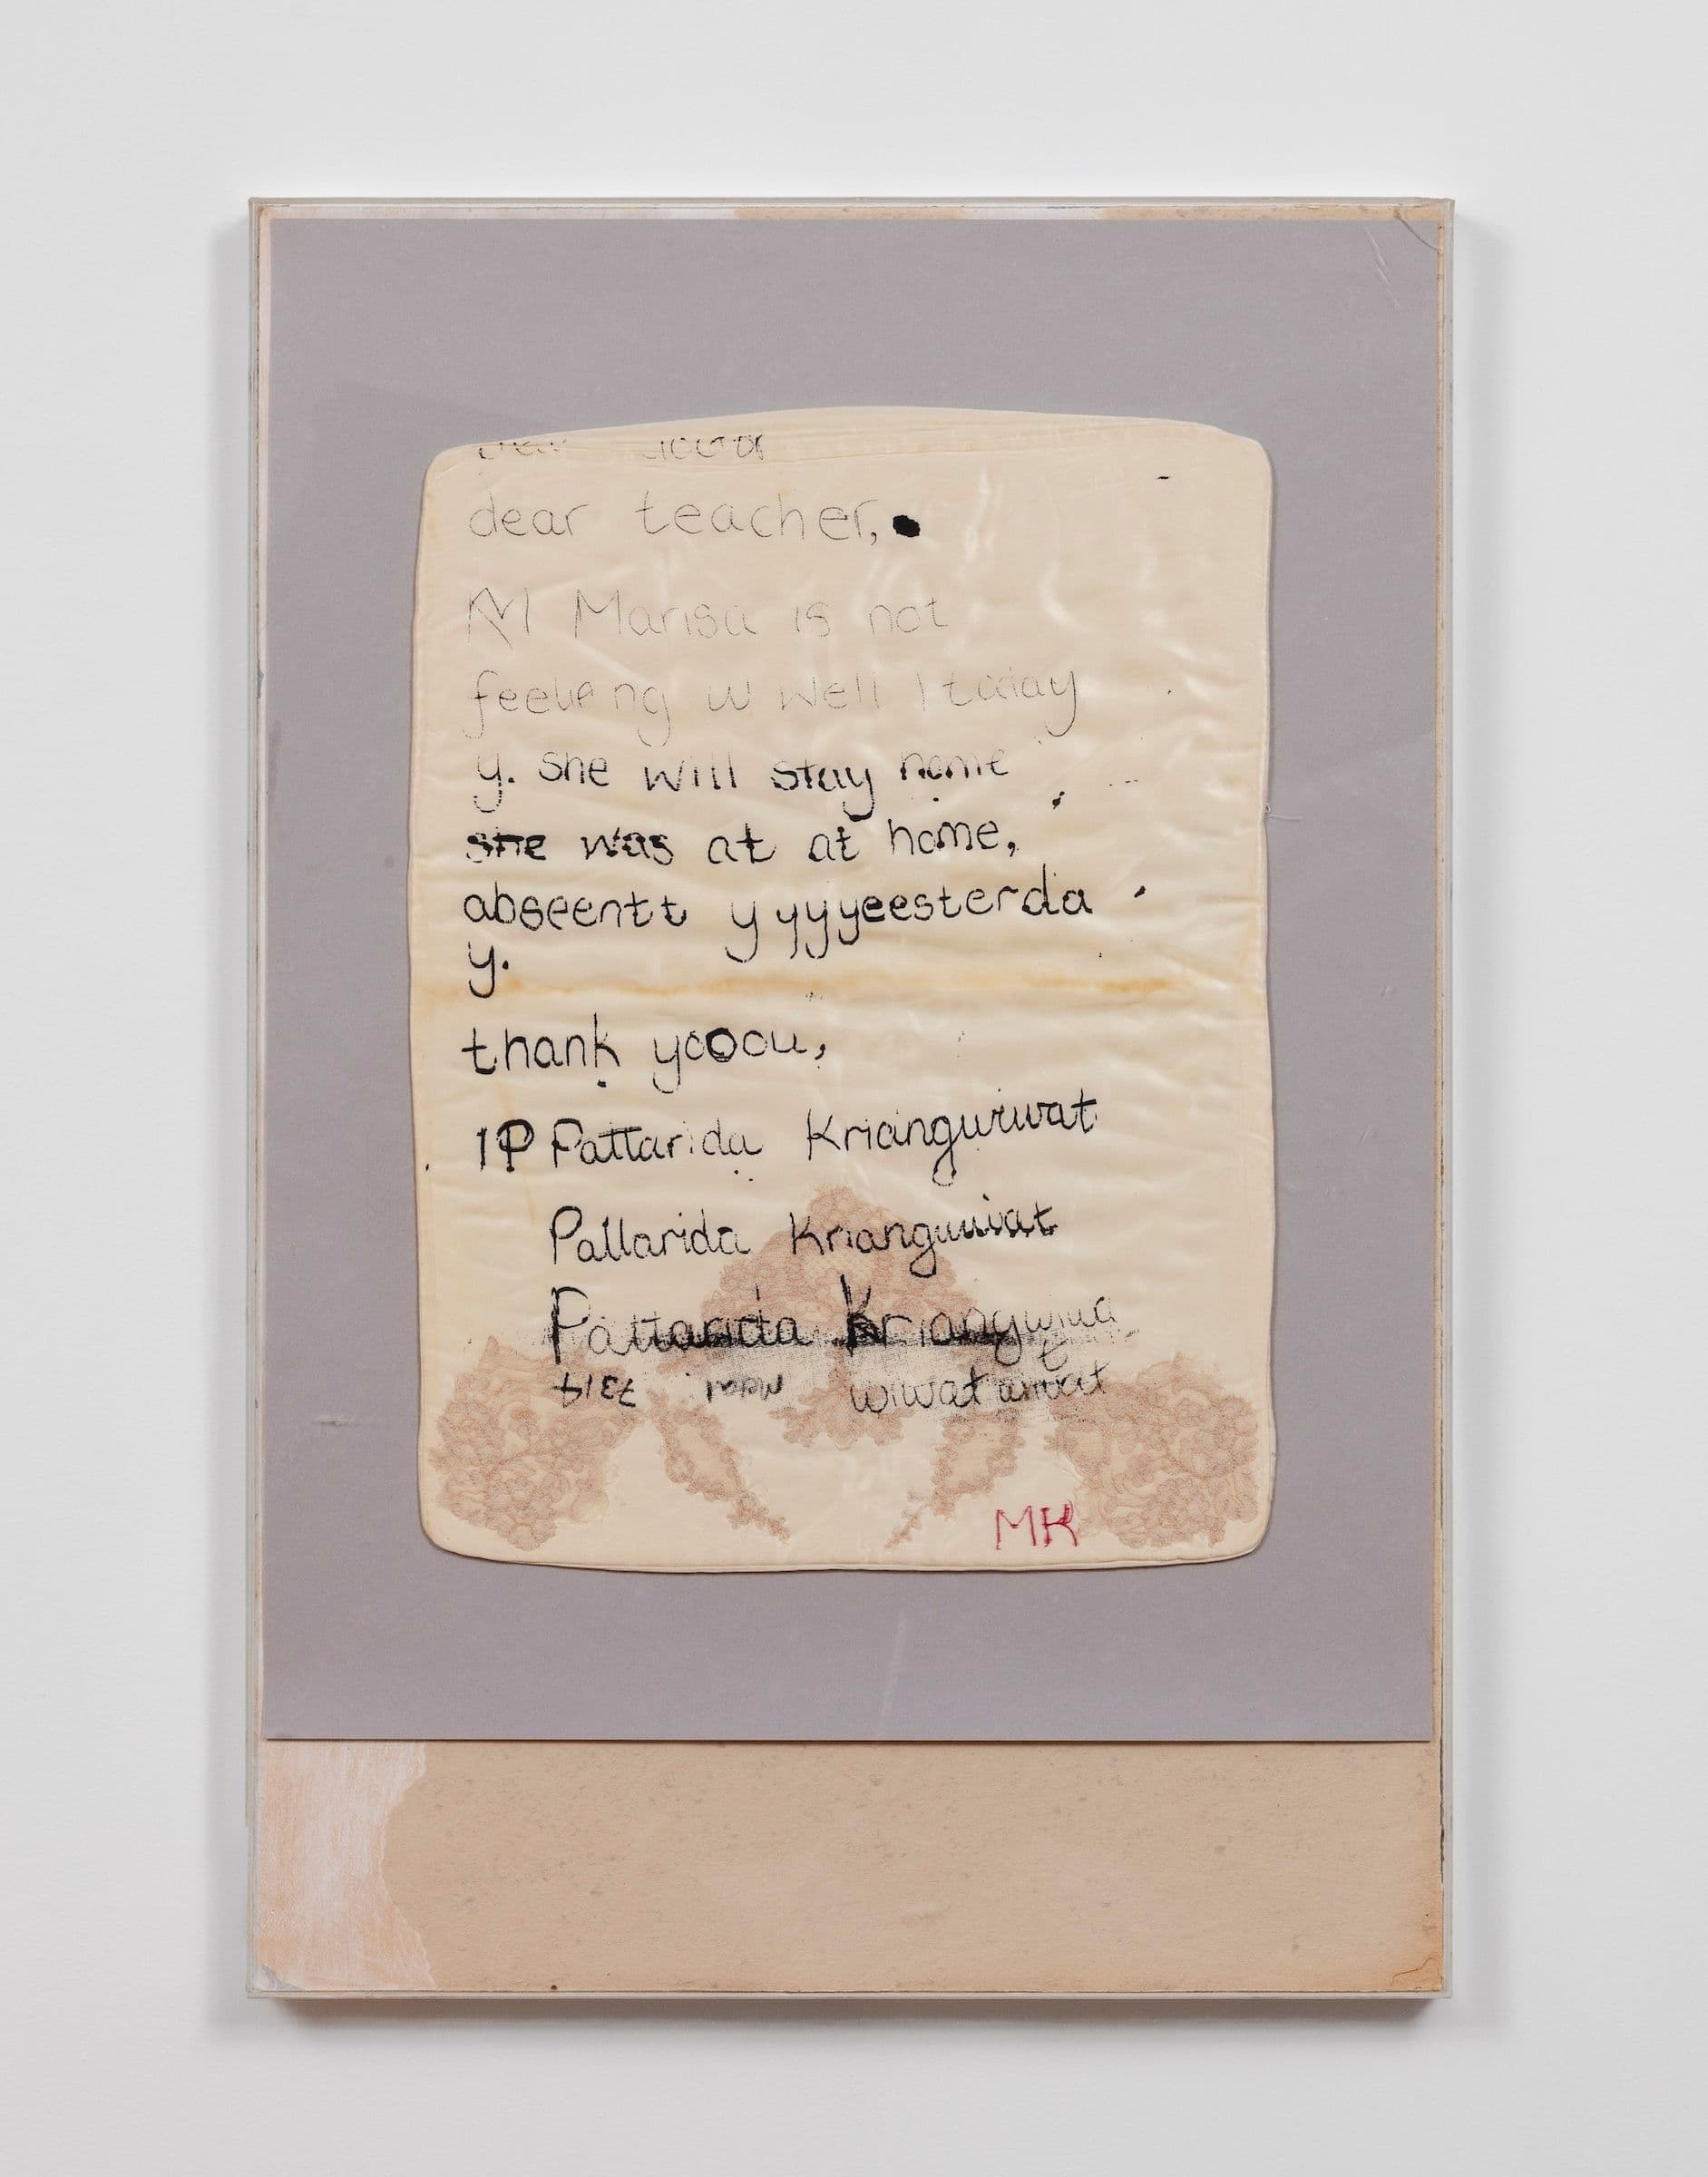 dear
dear teacher,
M Marisa is not
feeling w well today
y. she will stay home
she was at at home,
abseentt yyyyeesterda
y.
thank yooou,
1P Pattarida Kriangwiwat
Pallarida Kriangwiwat
Pattarida Kriangwiwa
t
wiwat
MK